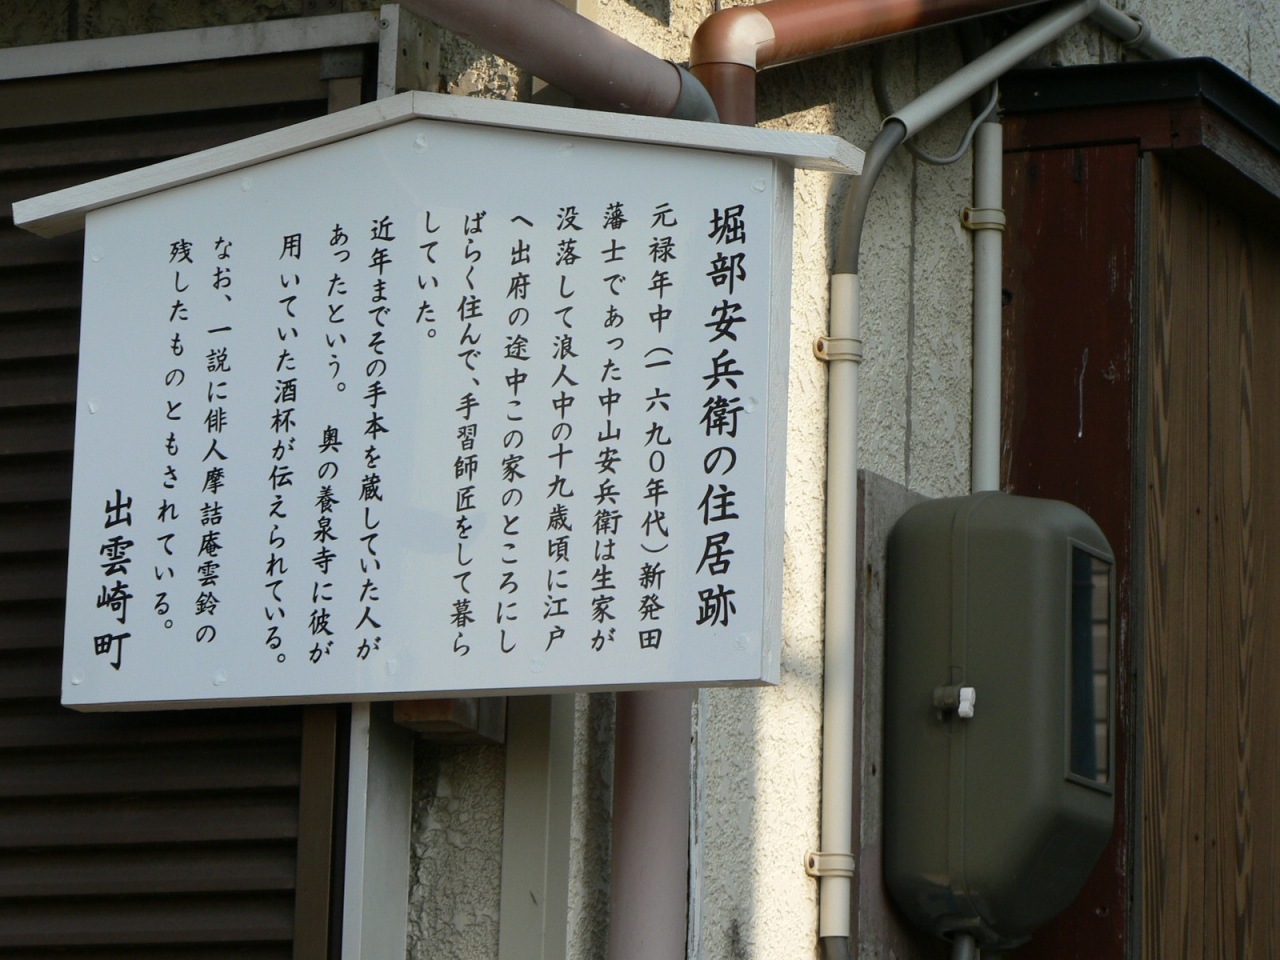 堀部安兵衛の住居跡
元禄年中（一六九〇年代）新発田
藩士であった中山安兵衛は生家が
没落して浪人中の十九歳頃に江戸
へ出府の途中この家のところにし
ばらく住んで、手習師匠をして暮ら
していた。
近年までその手本を蔵していた人が
あったという。　奥の養泉寺に彼が
用いていた酒杯が伝えられている。
なお、一説に俳人摩詰庵雲鈴の
残したものともされている。
出雲崎町